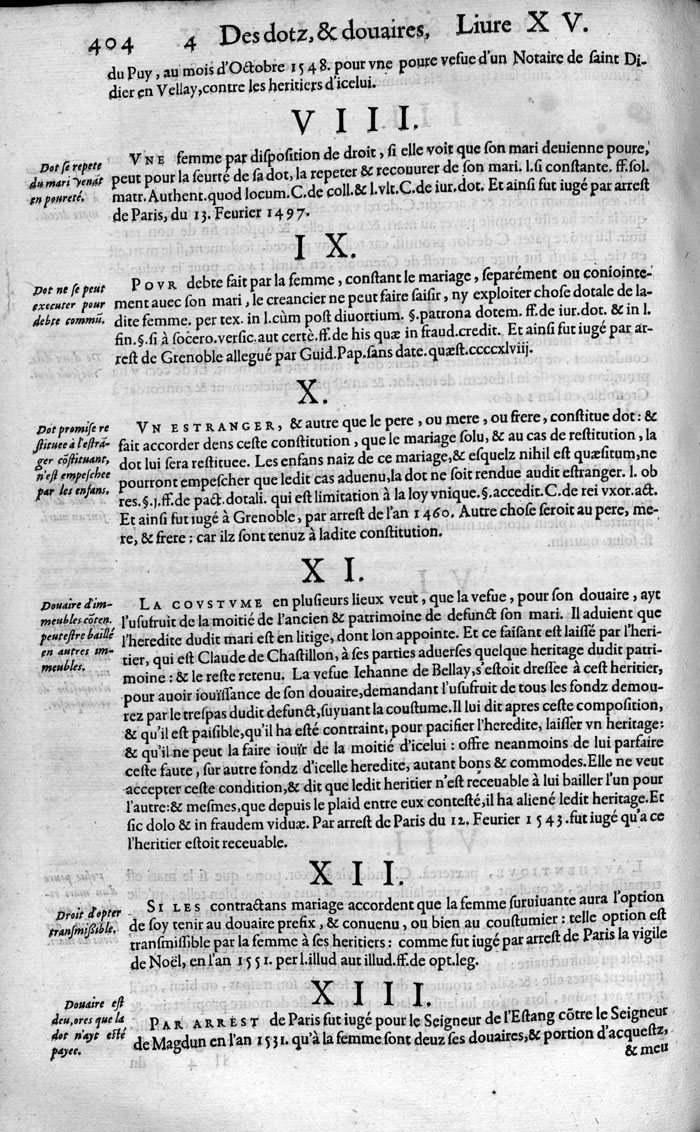 404 4 Des dotz, & douaires, Liure X V.
du Puy, au mois d'Octobre 1548. pour vne poure vefue d'un Notaire de saint Di-
dier en Vellay, contre les heritiers d'icelui.
V I I I.
Dot se repete
du mari venāt
en poureté.
VNE femme par disposition de droit, si elle voit que son mari deuienne poure,
peut pour la seurté de sa dot, la repeter & recouurer de son mari. l. si constante. ff. sol.
matr. Authent. quod locum. C. de coll. & l. vlt. C. de iur. dot. Et ainsi fut iugé par arrest
de Paris, du 13. Feurier 1497.
I X.
Dot ne se peut
executer pour
debte commū.
POVR debte fait par la femme, constant le mariage, separément ou coniointe-
ment auec son mari, le creancier ne peut faire saisir, ny exploiter chose dotale de la-
dite femme. per tex. in l. cùm post diuortium. §. patrona dotem. ff. de iur. dot. & in l.
fin. §. si à socero. versic. aut certè. ff. de his quæ in fraud. credit. Et ainsi fut iugé par ar-
rest de Grenoble allegué par Guid. Pap. sans date. quæst. ccccxlviij.
X.
Dot promise re
stituee à l'estrā-
ger cōstituant,
n'est empeschee
par les enfans.
VN ESTRANGER, & autre que le pere, ou mere, ou frere, constitue dot: &
fait accorder dens ceste constitution, que le mariage solu, & au cas de restitution, la
dot lui sera restituee. Les enfans naiz de ce mariage, & esquelz nihil est quæsitum, ne
pourront empescher que ledit cas aduenu, la dot ne soit rendue audit estranger. l. ob
res. §. j. ff. de pact. dotali. qui est limitation à la loy vnique. §. accedit. C. de rei vxor. act.
Et ainsi fut iugé à Grenoble, par arrest de l'an 1460. Autre chose seroit au pere, me-
re, & frere: car ilz sont tenuz à ladite constitution.
X I.
Douaire d'im-
meubles cōten.
peut estre baillé
en autres im-
meubles.
LA COVSTVME en plusieurs lieux veut, que la vefue, pour son douaire, ayt
l'usufruit de la moitié de l'ancien & patrimoine de defunct son mari. Il aduient que
l'heredite dudit mari est en litige, dont lon appointe. Et ce faisant est laissé par l'heri-
tier, qui est Claude de Chastillon, à ses parties aduerses quelque heritage dudit patri-
moine: & le reste retenu. La vefue Iehanne de Bellay, s'estoit dressee à cest heritier,
pour auoir iouïssance de son douaire, demandant l'usufruit de tous les fondz demou-
rez par le trespas dudit defunct, suyuant la coustume. Il lui dit apres ceste composition,
& qu'il est paisible, qu'il ha esté contraint, pour pacifier l'heredite, laisser vn heritage:
& qu'il ne peut la faire iouïr de la moitié d'icelui: offre neanmoins de lui parfaire
ceste faute, sur autre fondz d'icelle heredite, autant bons & commodes. Elle ne veut
accepter ceste condition, & dit que ledit heritier n'est receuable à lui bailler l'un pour
l'autre: & mesmes, que depuis le plaid entre eux contesté, il ha aliené ledit heritage. Et
sic dolo & in fraudem viduæ. Par arrest de Paris du 12. Feurier 1543. fut iugé qu'a ce
l'heritier estoit receuable.
X I I.
Droit d'opter
transmißible.
SI LES contractans mariage accordent que la femme suruiuante aura l'option
de soy tenir au douaire prefix, & conuenu, ou bien au coustumier: telle option est
transmissible par la femme à ses heritiers: comme fut iugé par arrest de Paris la vigile
de Noël, en l'an 1551. per l. illud aut illud. ff. de opt. leg.
X I I I.
Douaire est
deu, ores que la
dot n'ayt esté
payee.
PAR ARREST de Paris fut iugé pour le Seigneur de l'Estang cōtre le Seigneur
de Magdun en l'an 1531. qu'à la femme sont deuz ses douaires, & portion d'acquestz,
& meu